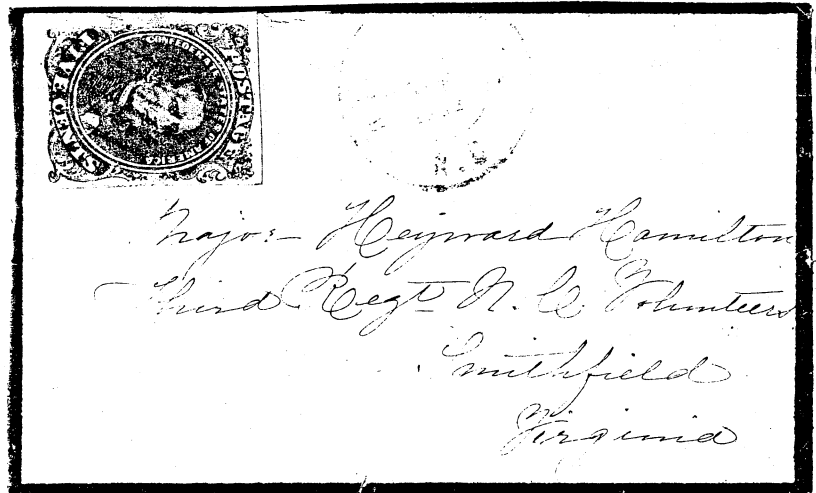 FIVE CENTS
POSTAGE
CONFEDERATE STATES OF AMERICA
N.C
Major Heyward Hamilton
Third Regt N. C Volunteers
Smithfield
Virginia